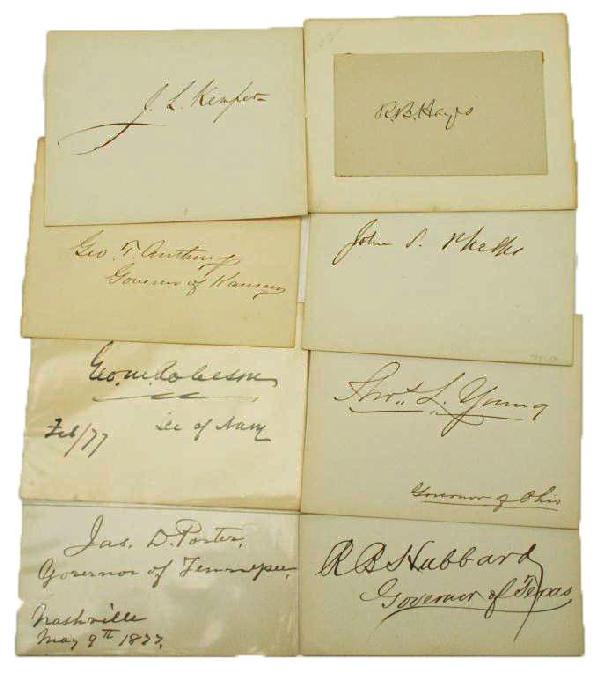 J. L. Kemper
R.B. Hayes
Geo. T. Anthony
Governor of Kansas
John S. Phelps
Geo. M. Robeson
Sec of Navy
Feb/77
Thos. L. Young
Governor of Ohio
Jas. D. Porter,
Governor of Tennessee,
Nashville
May 9th 1877.
R B Hubbard
Governor of Texas